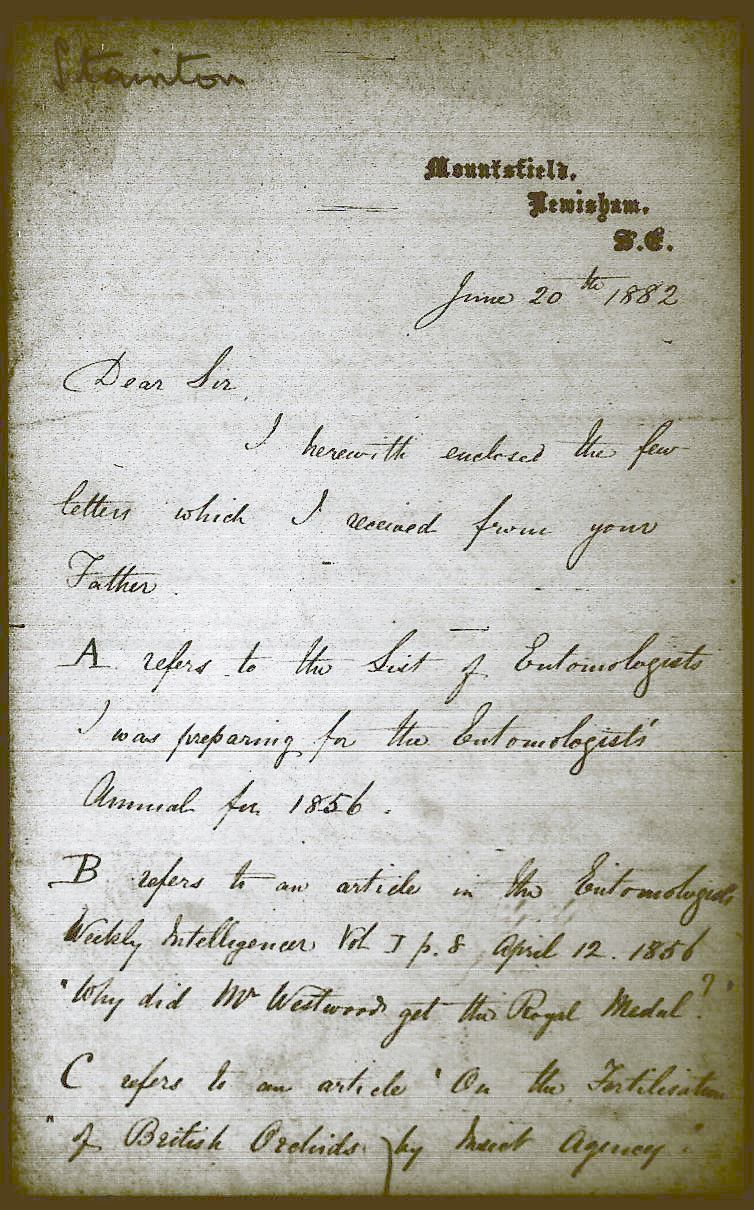 Stainton
Mountsfield.
Lewisham.
S.E.
June 20th 1882
Dear Sir,
I herewith enclosed the few
letters which I received from your
Father.
A refers to the List of Entomologists
I was preparing for the Entomologists'
Annual for 1856.
B refers to an article in the Entomologists
Weekly Intelligencer Vol I p. 8 April 12. 1856
"Why did Mr Westwood get the Royal Medal?"
C refers to an article "On the Fertilisation
"of British Orchids by Insect Agency."